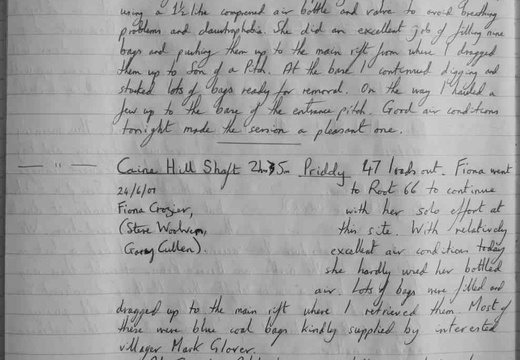 using a 1½ litre compressed air bottle and valve to avoid breathing
problems and claustrophobia. She did an excellent job of filling nine
bags and pushing them up to the main rift from where I dragged
them up to Son of a Pitch. At the base I continued digging and
stacked lots of bags ready for removal. On the way I hauled a
few up to the base of the entrance pitch. Good air conditions
tonight made the session a pleasant one.
— " — Caine Hill Shaft 2hr 35m Priddy. 47 loads out. Fiona went
24/4/07 to Root 66 to continue
Fiona Crozier, with her solo effort at
(Steve Workman, this site. With relatively
Garry Cullen). excellent air conditions today
she hardly used her bottled
air. Lots of bags were filled and
dragged up to the main rift where I retrieved them. Most of
these were blue coal bags kindly supplied by interested
villager Mark Glover.